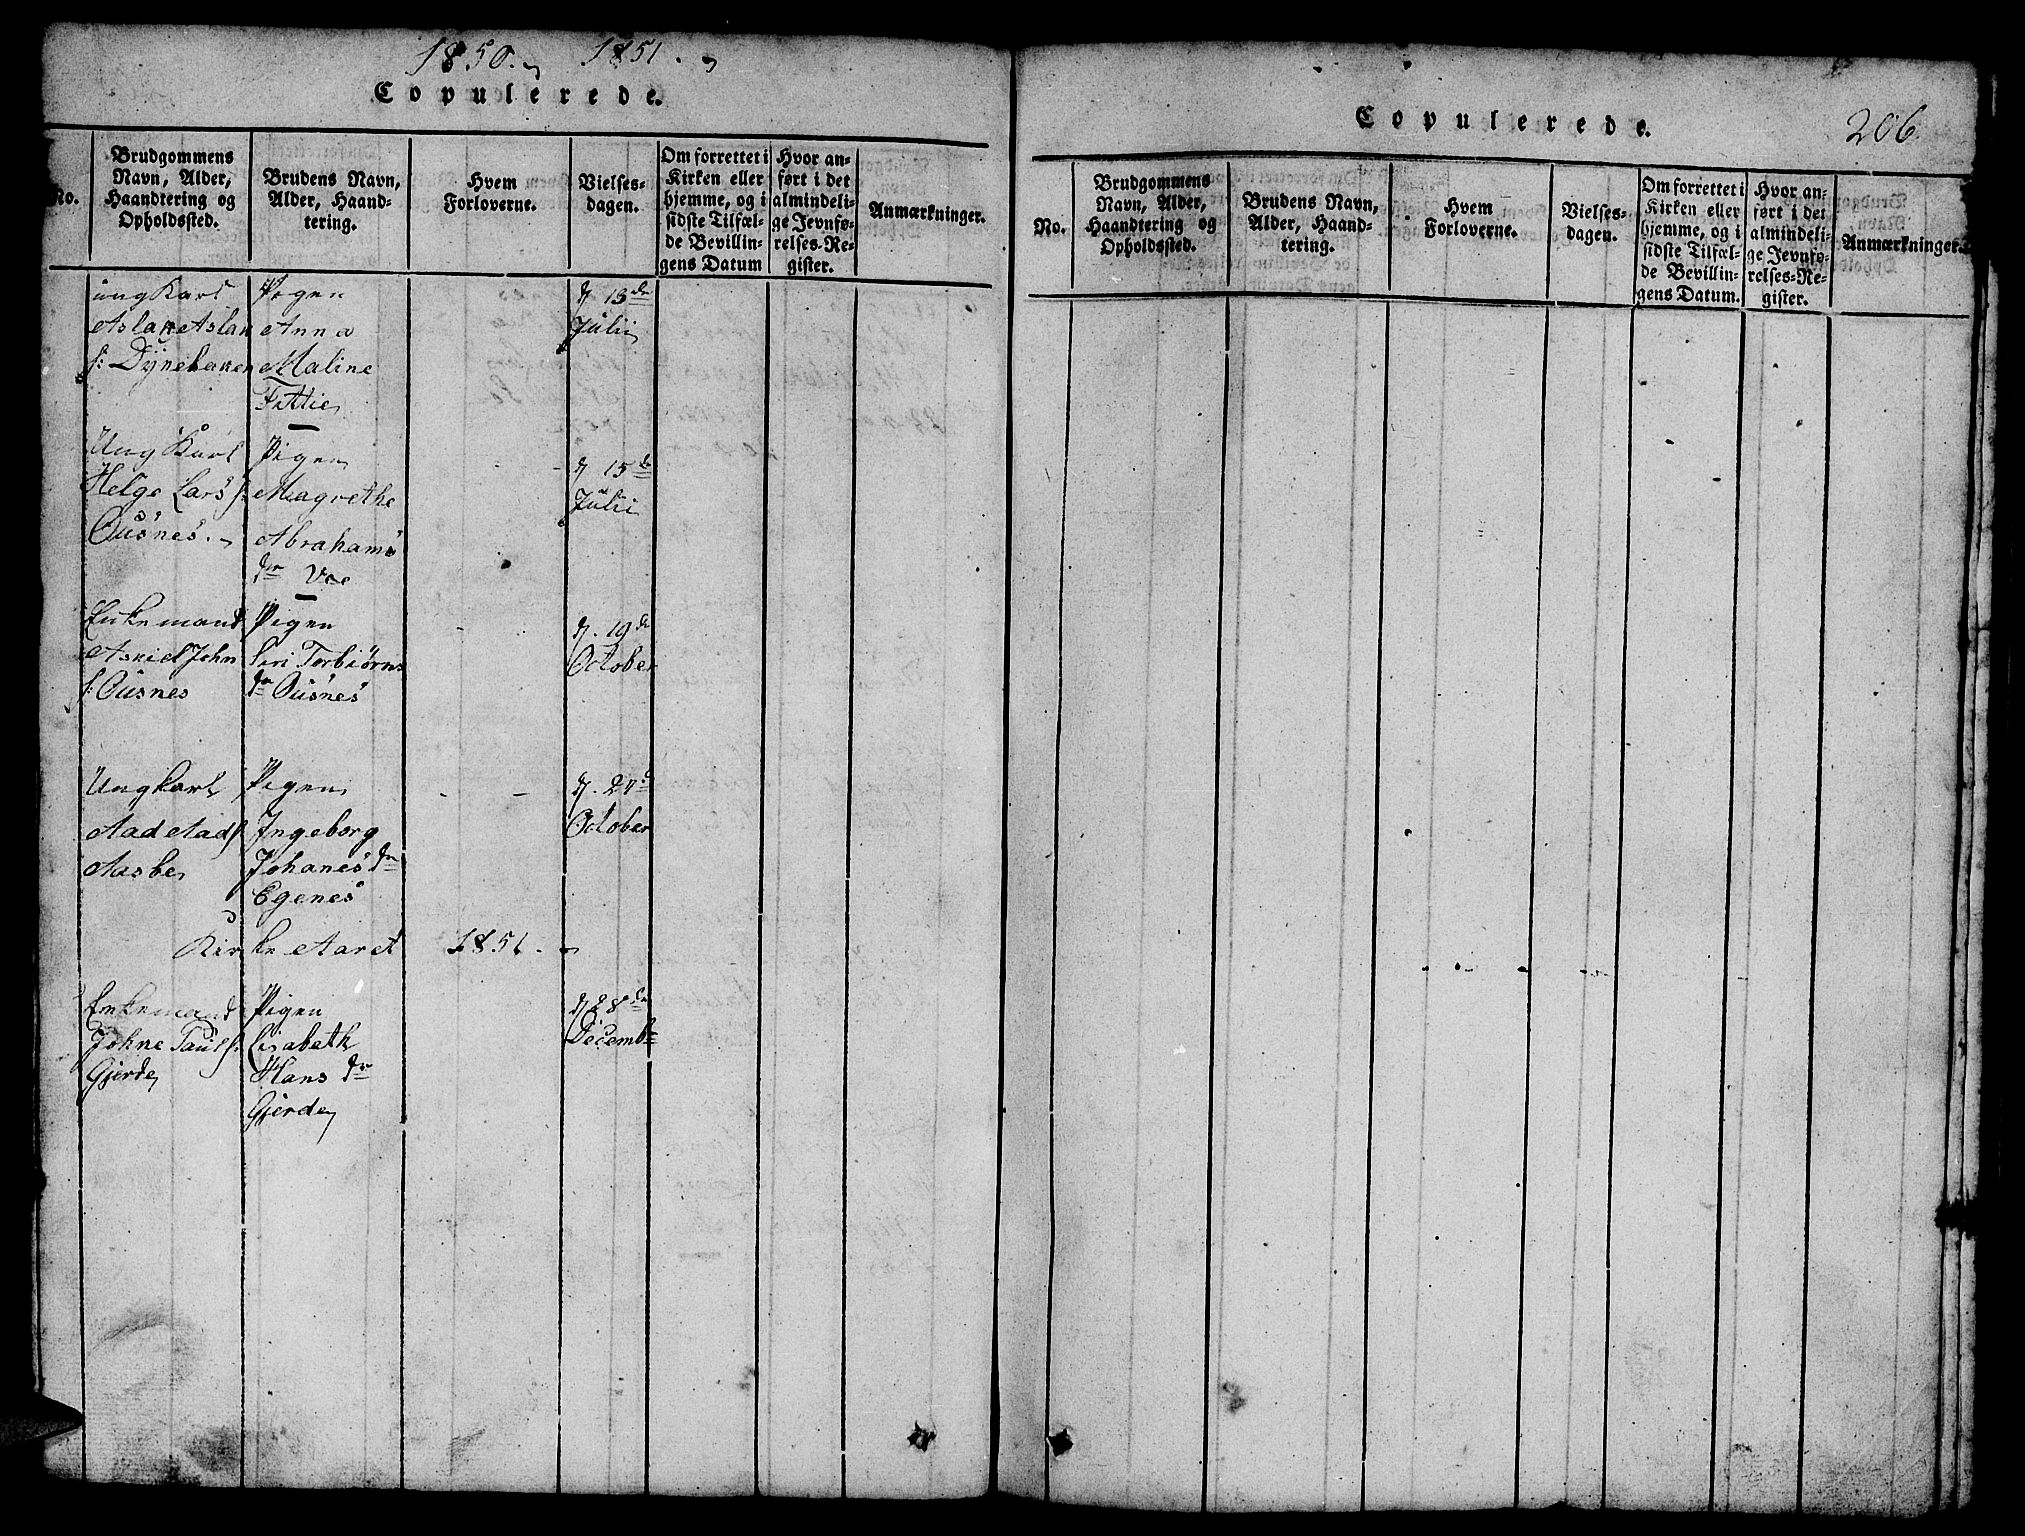 1850. 1851.
Copulerede.
No.
Brudgommens
Navn, Alder,
Haandtering og
Opholdssted.
Brudens Navn,
Alder, Haand-
tering.
Hvem
Forloverne.
Vielses-
dagen.
Om forrettet i
Kirken eller
hjemme, og i
sidste Tilfæl-
de Bevillin-
gens Datum
Hvor an-
ført i det
almindeli-
ge Jevnfø-
relses-Re-
gister.
Anmærkninger.
ung Karl
Aslak Aslak
s: Dynebaken
Pigen
Anna
Maline
Fittie
d 13de
Julii
Ung Karl
Helge Lars s:
Ousnes.
Pigen
Magrethe
Abrahams
dr Vae
d 15de
Julii
Enkemand
Askiel John
s: Ousnes
Pigen
Siri Torbiørns
dr Ousnes
d. 19de
October
Ungkarl
Aad Aads
Aasbe
Pigen
Ingeborg
Johanes dr
Egenes
d. 27d
October
Kirke Aaret 1851.
Enkemand
Johne Pauls:
Gjerde
Pigen
Lisabeth
Hans dr
Gjerde
d 28de
Decembr
Copulerede.
206.
No.
Brudgommens
Navn, Alder,
Haandtering og
Opholdssted.
Brudens Navn,
Alder, Haand-
tering.
Hvem
Forloverne.
Vielses-
dagen.
Om forrettet i
Kirken eller
hjemme, og i
sidste Tilfæl-
de Bevillin-
gens Datum.
Hvor an-
ført i det
almindeli-
ge Jevnfø-
relses-Re-
gister.
Anmærkninger.